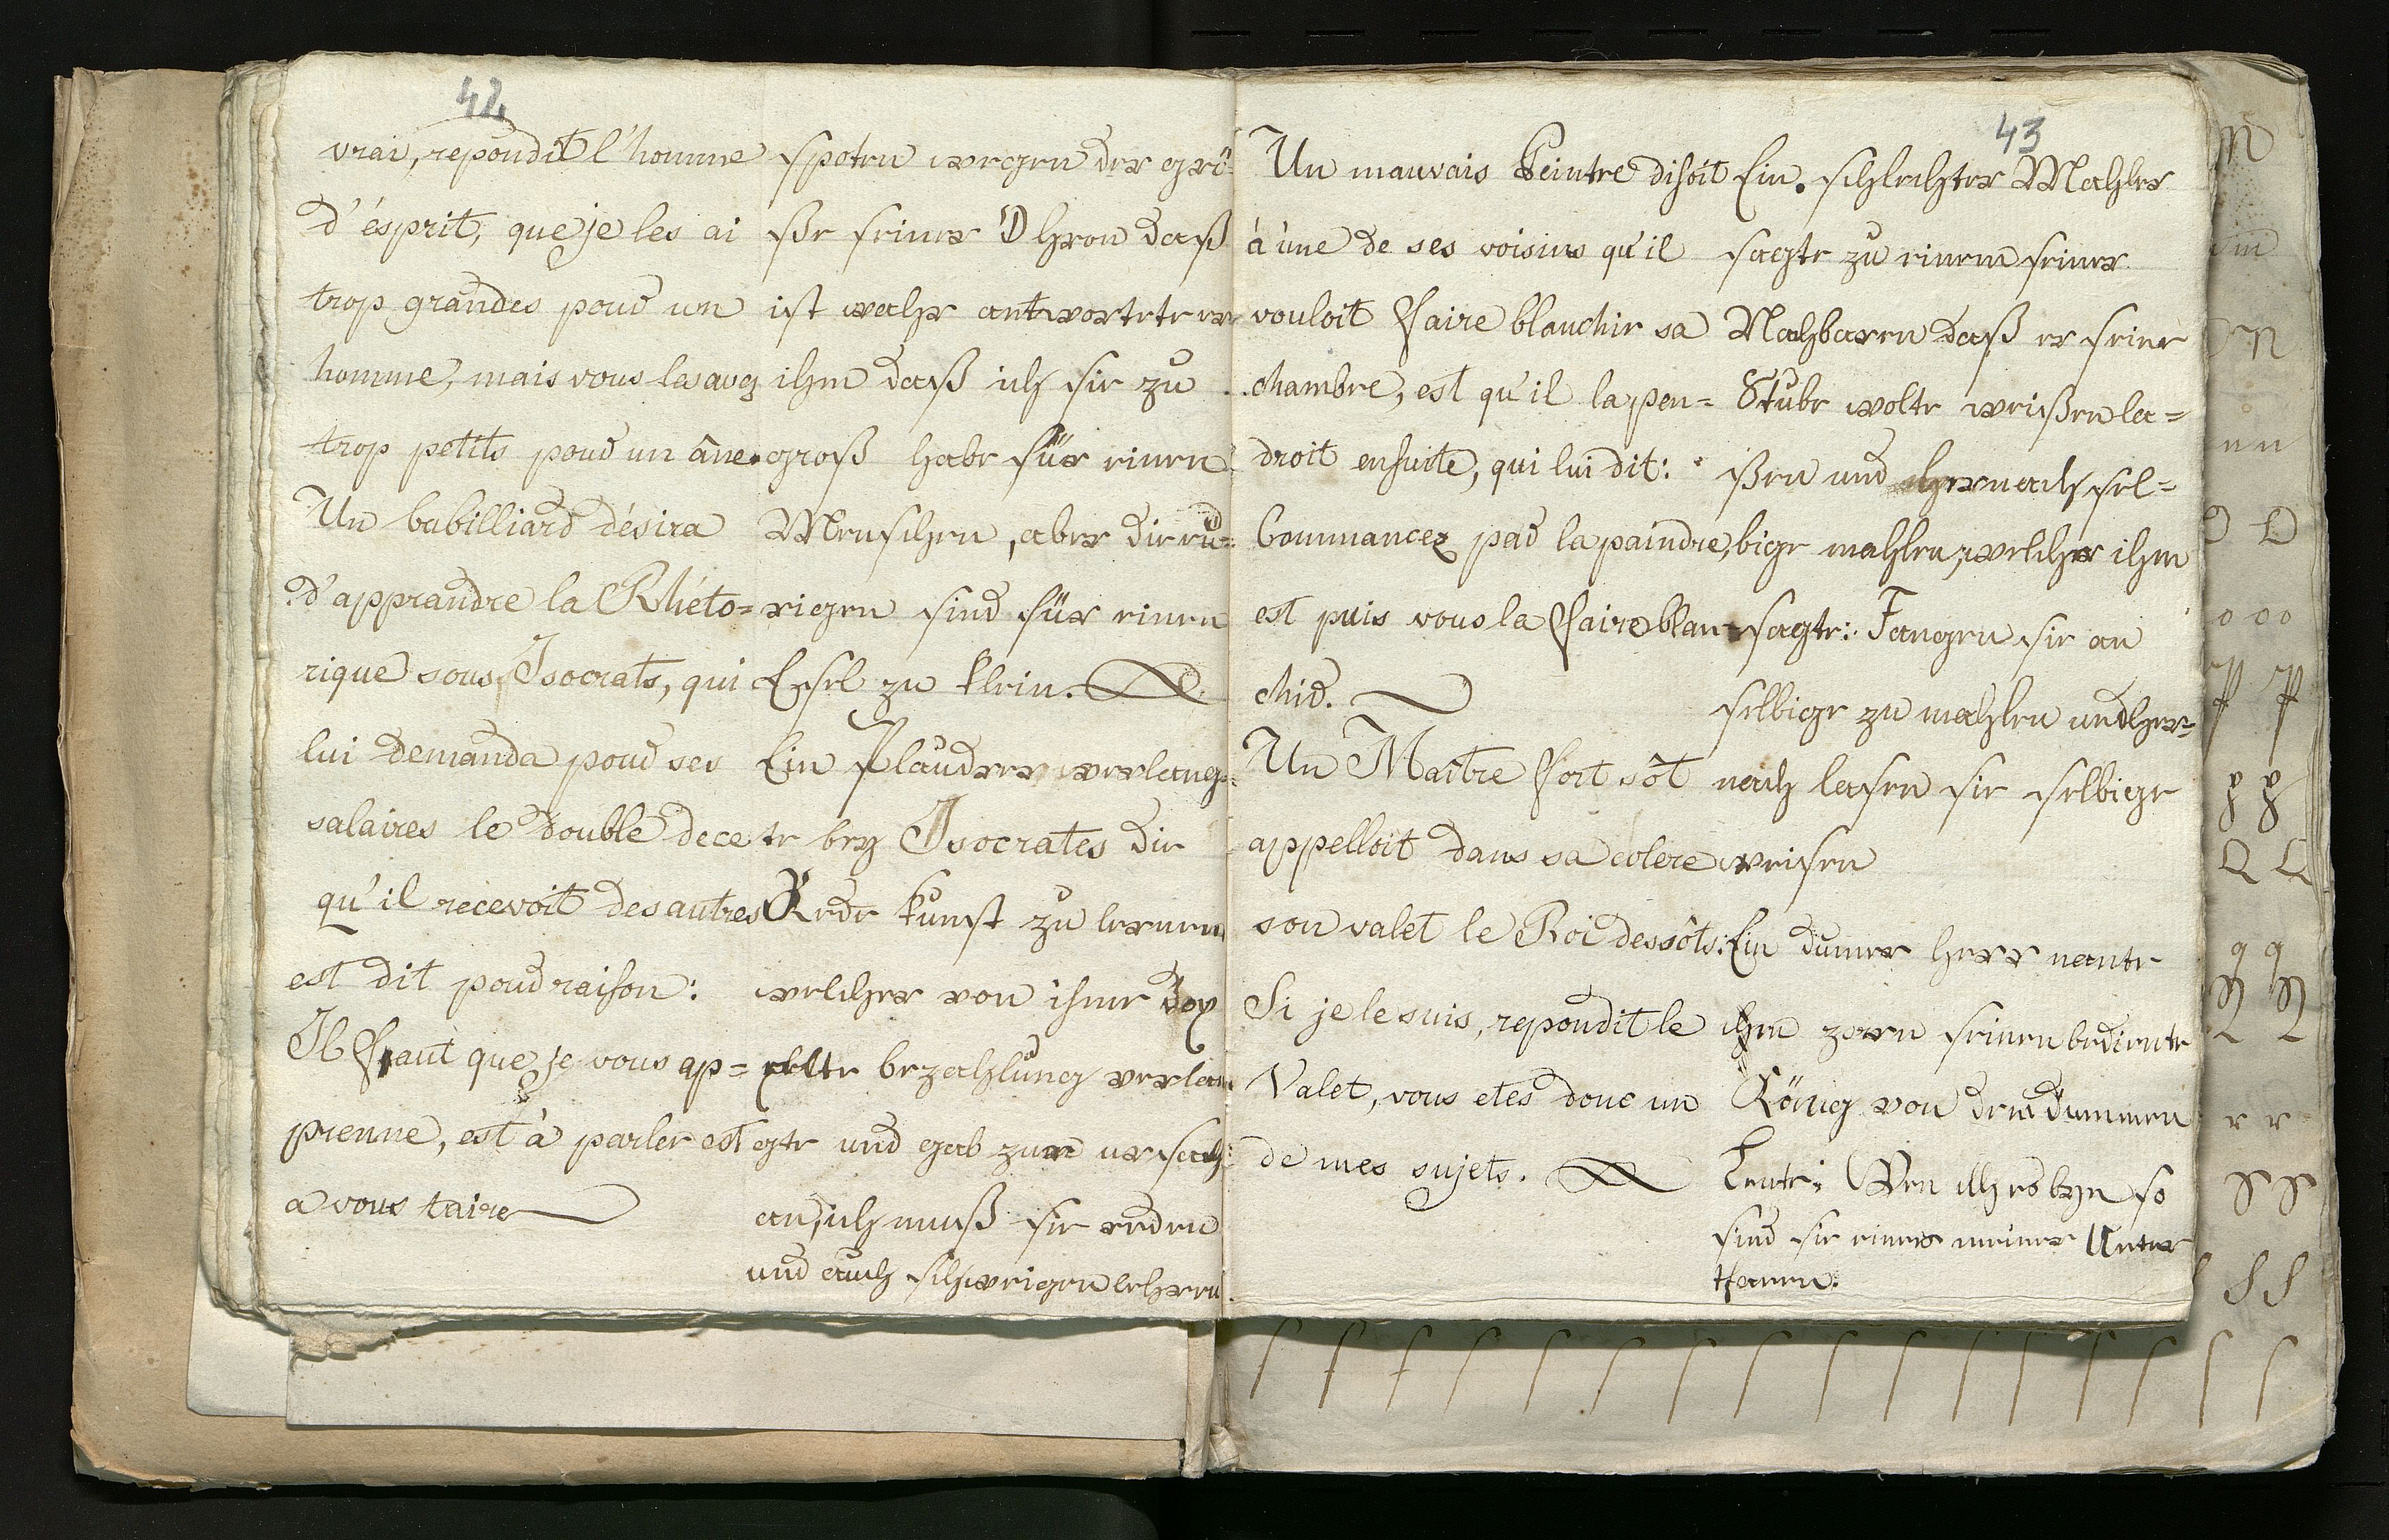 42
vrai, repondit l'homme
d'ésprit, que je les ai
trop grandes pour un
homme, mais vous les avez
trop petits pour un âne.
Un babilliard désira
d'apprandre la Rhéto=
rique sous Isocrats, qui
lui demanda pour ses
salaires le double de ce
qu'il recevoit des autres
est dit pour raison:
Il faut que je vous ap=
prenne, est à parler est
a vous taire
spoten wegen der grö=
ße seiner Ohren daß
ist wahr antwortete er
ihm daß ich sie zu
groß habe für einen
Menschen, aber die eu=
rigen sind für einen
Essel zu klein.
Ein Plauderer verlang=
te bey Isocrates die
Rede kunst zu lernen
welcher von ihme dop
pelte bezahlung verlan
gte und gab zur ursach
an, ich muß sie reden
und auch schweigen lehren.
43
Un mauvais Peintre disoit
à une de ses voisins qu'il
vouloit faire blanchir sa
chambre, est qu'il la pen=
droit ensuite, qui lui dit:
Commancez par la paindre,
est puis vous la faire blan
chir.
Un Maître fort sôt
appelloit dans sa colere
son valet le Roi des sôts:
Si je le suis, repondit le
Valet, vous etes donc un
de mes sujets.
Ein schlechter Mahler
sagte zu einem seiner
Nachbaren daß er seine
Stube wolte weißen la=
ßen und hernach sel=
bige mahlen, welcher ihm
sagte: Fangen sie an
selbige zu mahlen und her=
nach lasen sie selbige
weisen
Ein dumer herr nante
ihm zorn seinen bediente
König von den dummen
Leute: Wen ich es byn so
sind sie eines meiner Unter
thanen.